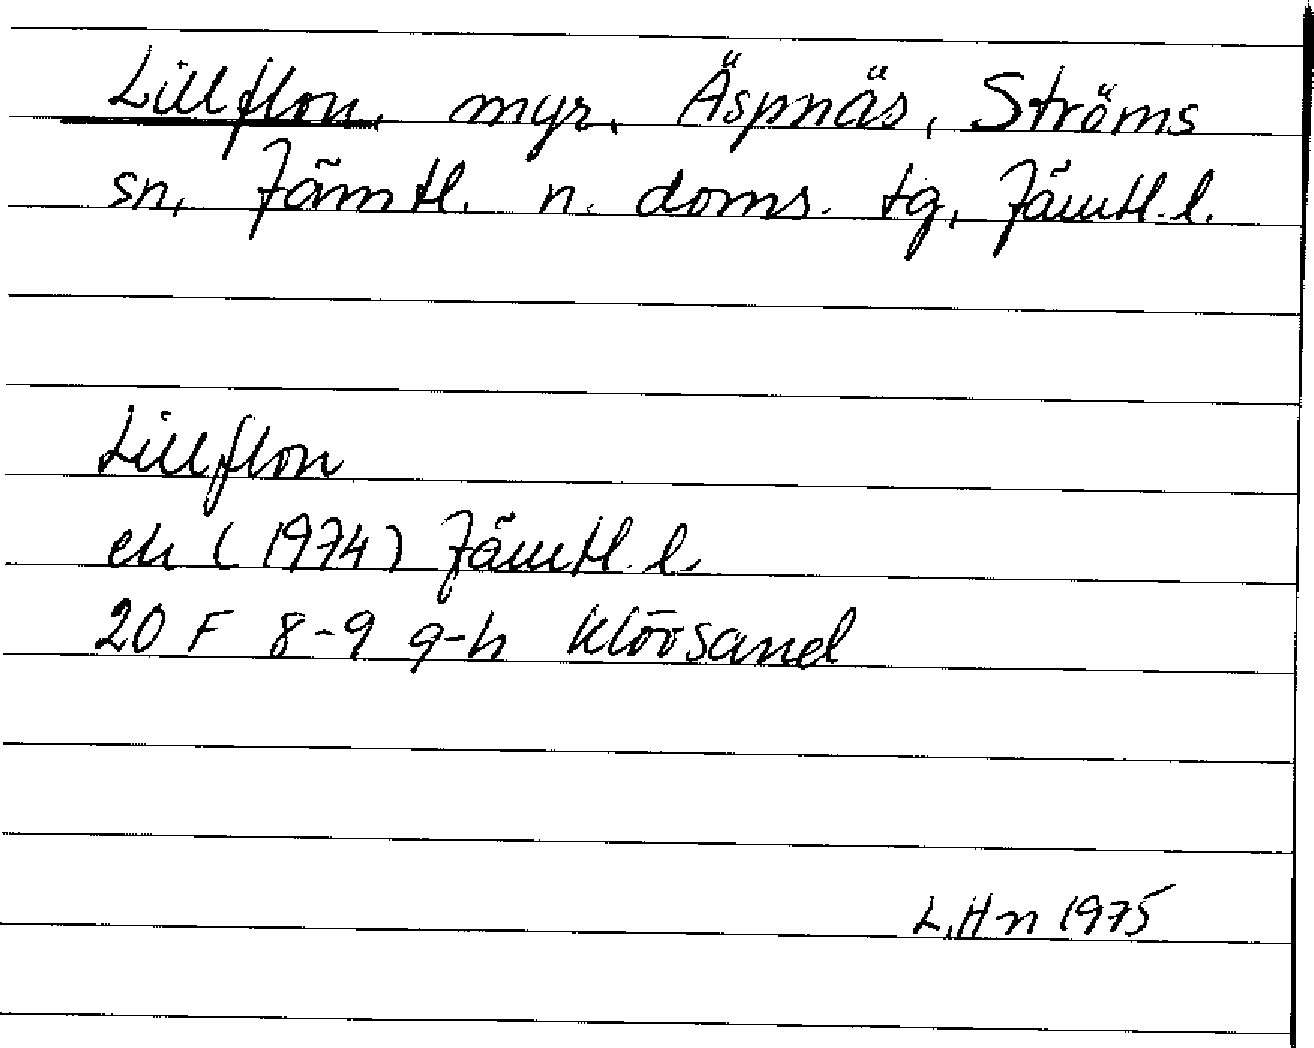 Lillflon, myr, Äspnäs, Ströms
sn, Jämtl. n. doms. tg, Jämtl. l.
Lillflon
ek (1974) Jämtl. l.
20 F 8-9 g-h Klövsand
L. Hn 1975